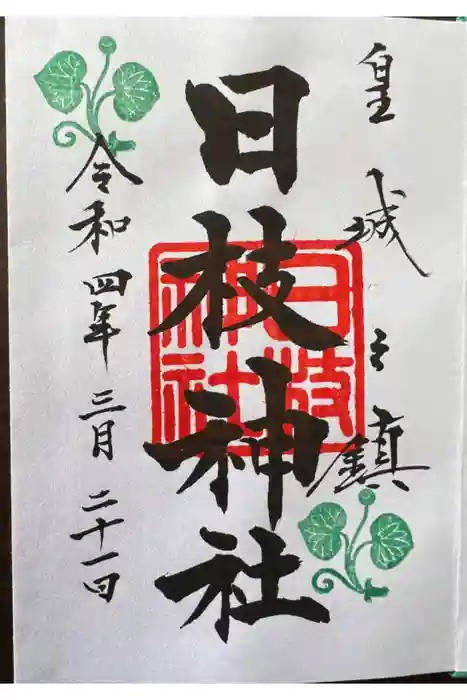 皇城之鎮
日枝神社
日枝神社
令和四年三月二十一日